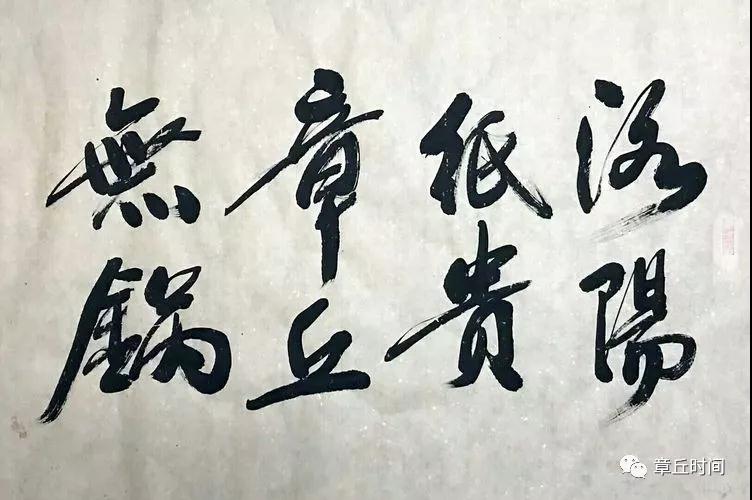 洛陽
紙貴
章丘
無鍋
章丘时间